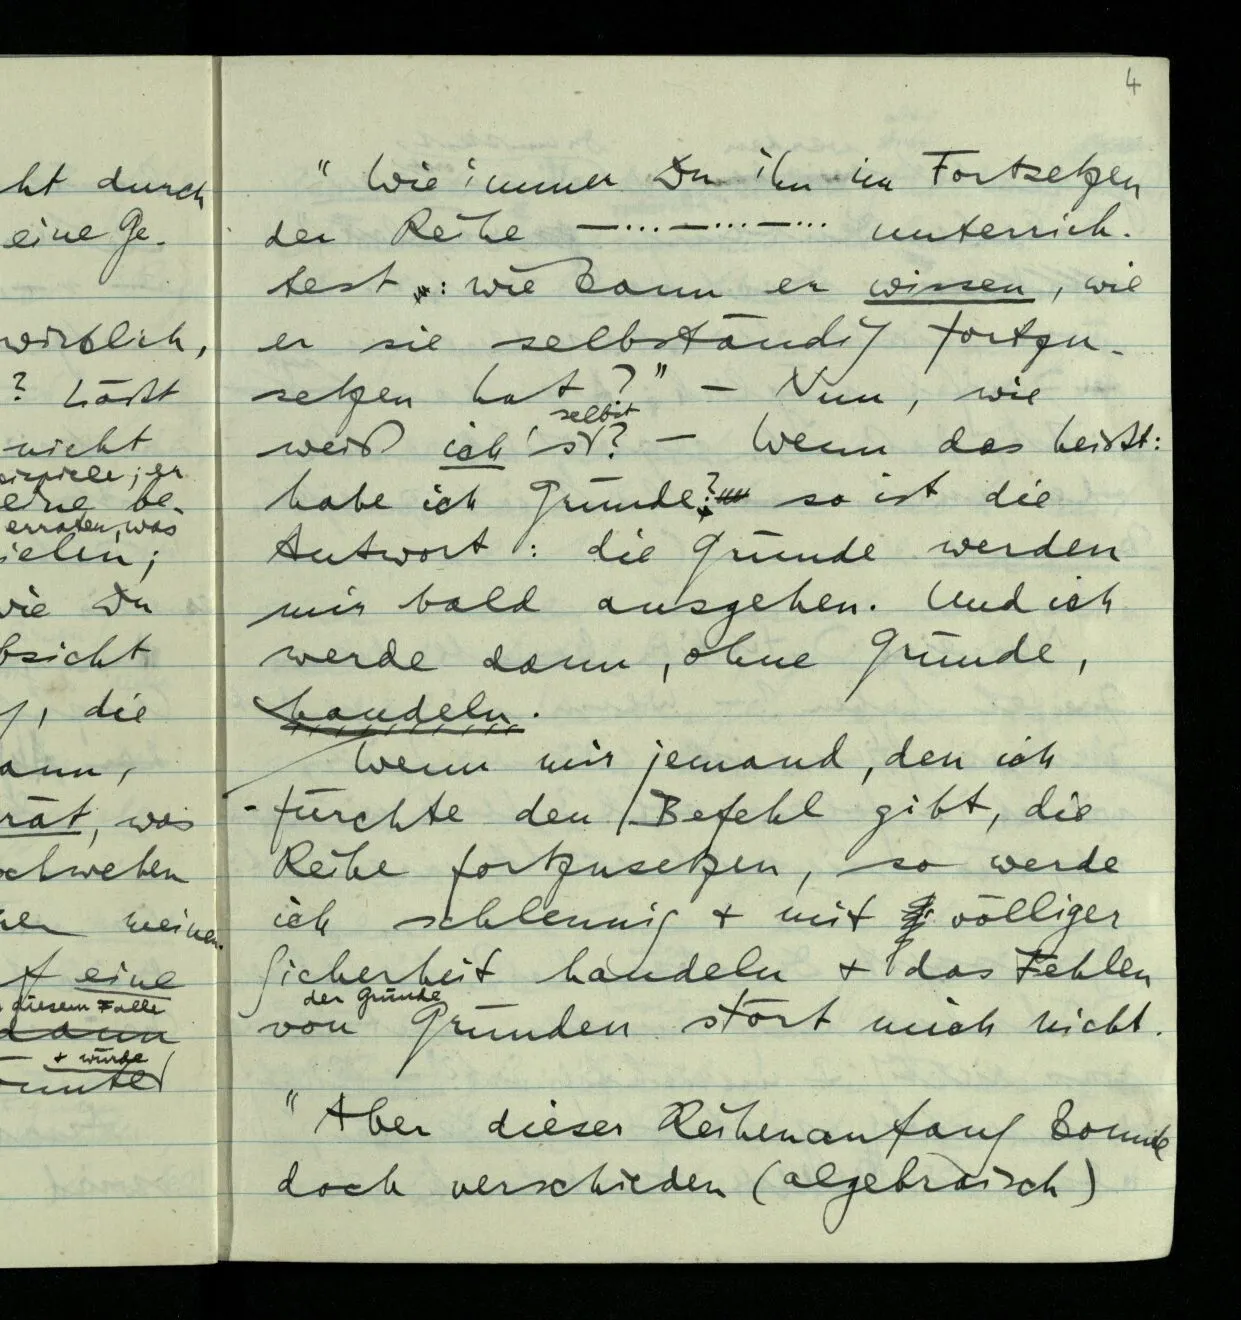 4
ht durch
eine Ge-
wirklich,
? Läßt
nicht
eispiele; er
eine be-
erraten, was
ielen;
wie Du
bsicht
, die
ann,
rät, was
schweben
meinen
eine
diesem Falle
dann
+ würde
" Wie immer Du ihn im Fortsetzen
der Reihe —...—...—... unterrich-
test : wie kann er wissen, wie
er sie selbständig fortzu-
setzen hat ?" — Nun, wie
selbst
weiß ich 's? — Wenn das heißt:
habe ich Gründe? so ist die
Antwort: die Gründe werden
mir bald ausgehen. Und ich
werde dann, ohne Gründe,
handeln.
Wenn mir jemand, den ich
fürchte den Befehl gibt, die
Reihe fortzusetzen, so werde
ich schleunig + mit völliger
Sicherheit handeln + das Fehlen
der Gründe
von Gründen stört mich nicht.
" Aber dieser Reihenanfang konnte
doch verschieden (algebraisch)